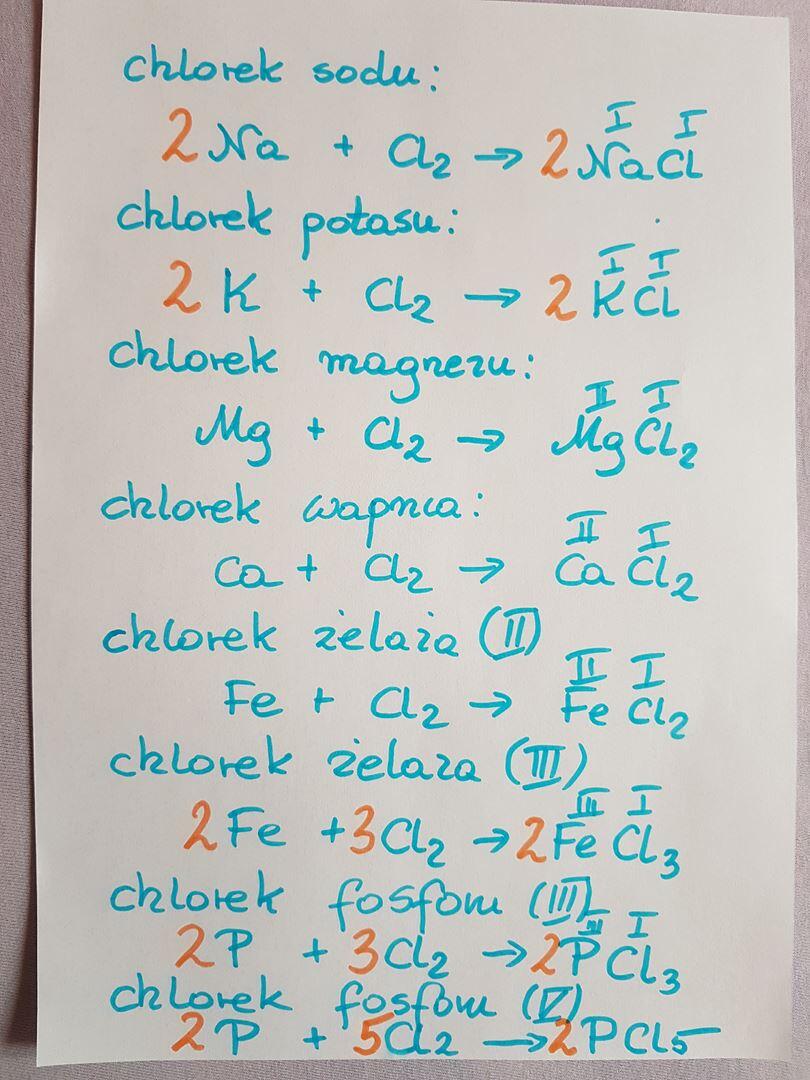 chlorek sodu:
2Na + Cl₂ → 2 NaᴵClᴵ
chlorek potasu:
2 K + Cl₂ → 2 KᴵClᴵ
chlorek magnezu:
Mg + Cl₂ → MgᴵᴵClᴵ₂
chlorek wapnia:
Ca + Cl₂ → CaᴵᴵClᴵ₂
chlorek żelaza (II)
Fe + Cl₂ → FeᴵᴵClᴵ₂
chlorek żelaza (III)
2Fe + 3Cl₂ → 2FeᴵᴵᴵClᴵ₃
chlorek fosforu (III)
2P + 3Cl₂ → 2PᴵᴵᴵClᴵ₃
chlorek fosforu (V)
2P + 5Cl₂ → 2PCl₅